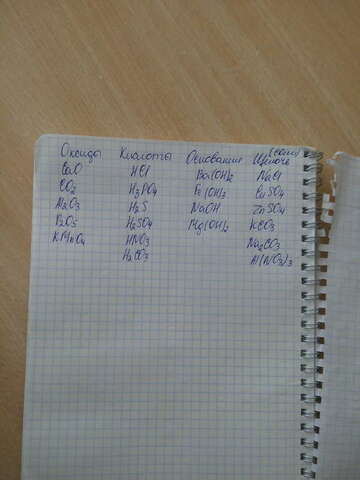 Оксиды Кислоты Основания Щёлочь (соли)
CaO HCl Ba(OH)2 NaCl
CO2 H3PO4 Fe(OH)3 CuSO4
Al2O3 H2S NaOH ZnSO4
P2O5 H2SO4 Mg(OH)2 KCO3
KMnO4 HNO3 Na2CO3
H2CO3 Al(NO3)3